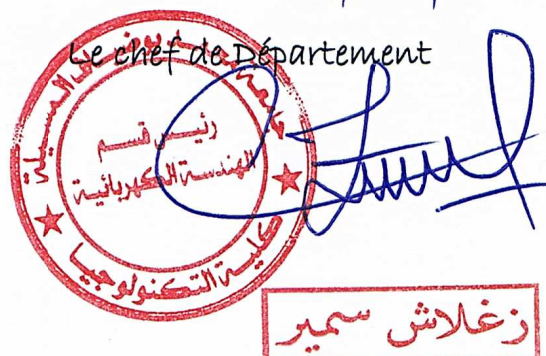 Le chef de Département
جامعة محمد بوضياف المسيلة
رئيس قسم
الهندسة الكهربائية
كلية التكنولوجيا
زغلاش سمير